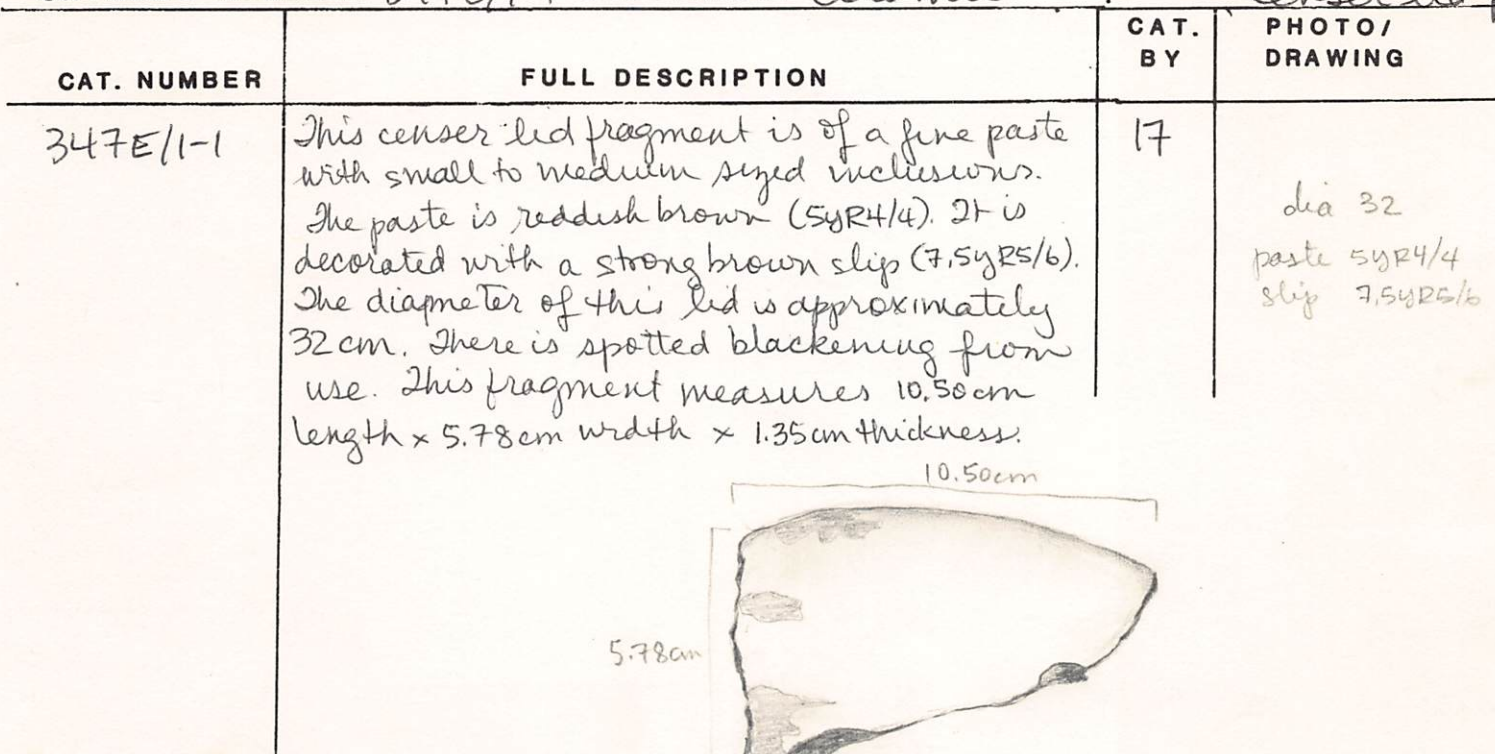 CAT. NUMBER
FULL DESCRIPTION
CAT.
BY
PHOTO/
DRAWING
347E/1-1
This censer lid fragment is of a fine paste
with small to medium sized inclusions.
The paste is reddish brown (5YR4/4). It is
decorated with a strong brown slip (7,5YR5/6).
The diapmeter of this lid is approximately
32 cm. There is spotted blackening from
use. This fragment measures 10.50 cm
length x 5.78 cm width x 1.35 cm thickness.
17
dia 32
paste 5YR4/4
slip 7,5YR5/6
10.50cm
5.78cm